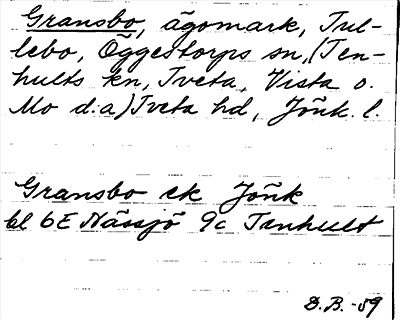 Gransbo, ägomark, Tul-
lebo, Öggestorps sn, (Ten-
hults kn, Tveta, Vista o.
Mo d:a) Tveta hd, Jönk. l.
Gransbo ek Jönk
bl 6E Nässjö 9c Tenhult
D.B. -59